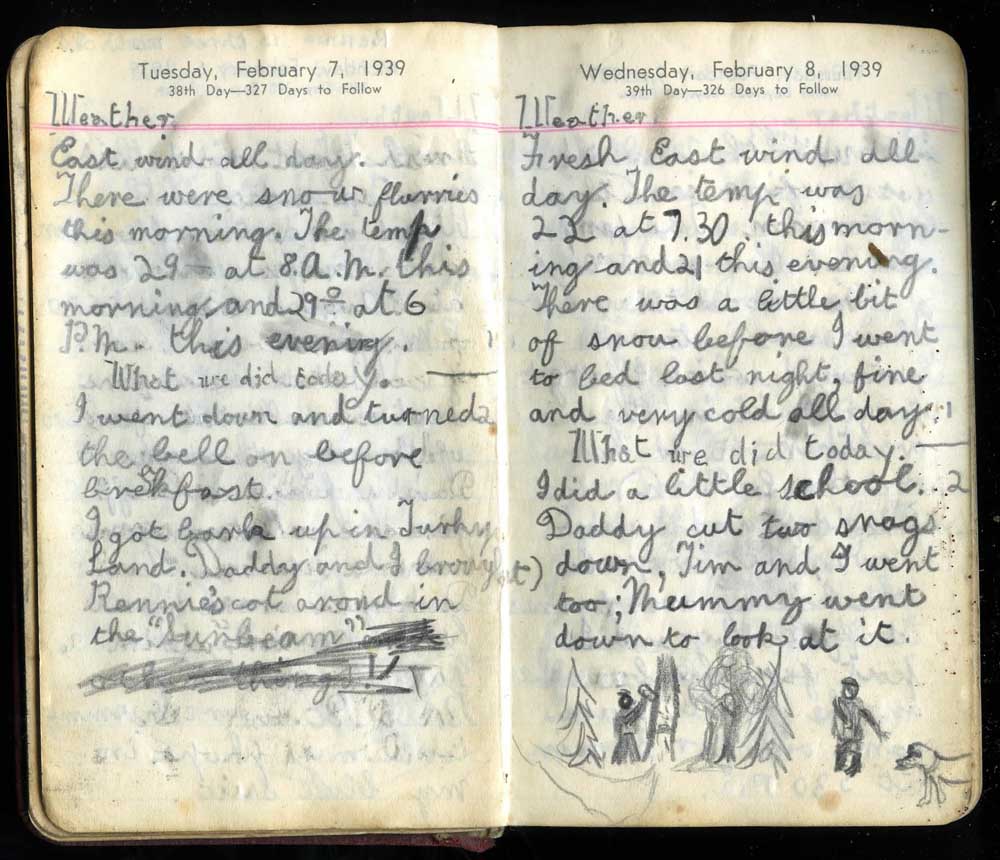 Tuesday, February 7, 1939
38th Day—327 Days to Follow
Weather.
East wind all day.
There were snow flurries
this morning. The temp
was 29 at 8.A.M. this
morning and 29° at 6
P.M. this evening.
What we did today.
I went down and turned 2
the bell on before
brekfast.
I got bark up in Turky
Land. Daddy and I brough(t)
Rennie's cot arond in
the "Sunbeam"
things.
Wednesday, February 8, 1939
39th Day—326 Days to Follow
Weather.
Fresh East wind all
day. The temp was
22 at 7.30 this morn-
ing and 21 this evening.
There was a little bit
of snow before I went
to bed last night, fine
and very cold all day. 1
What we did today.
I did a little school. 2
Daddy cut two snags
down, Tim and I went
too; Mummy went
down to look at it.